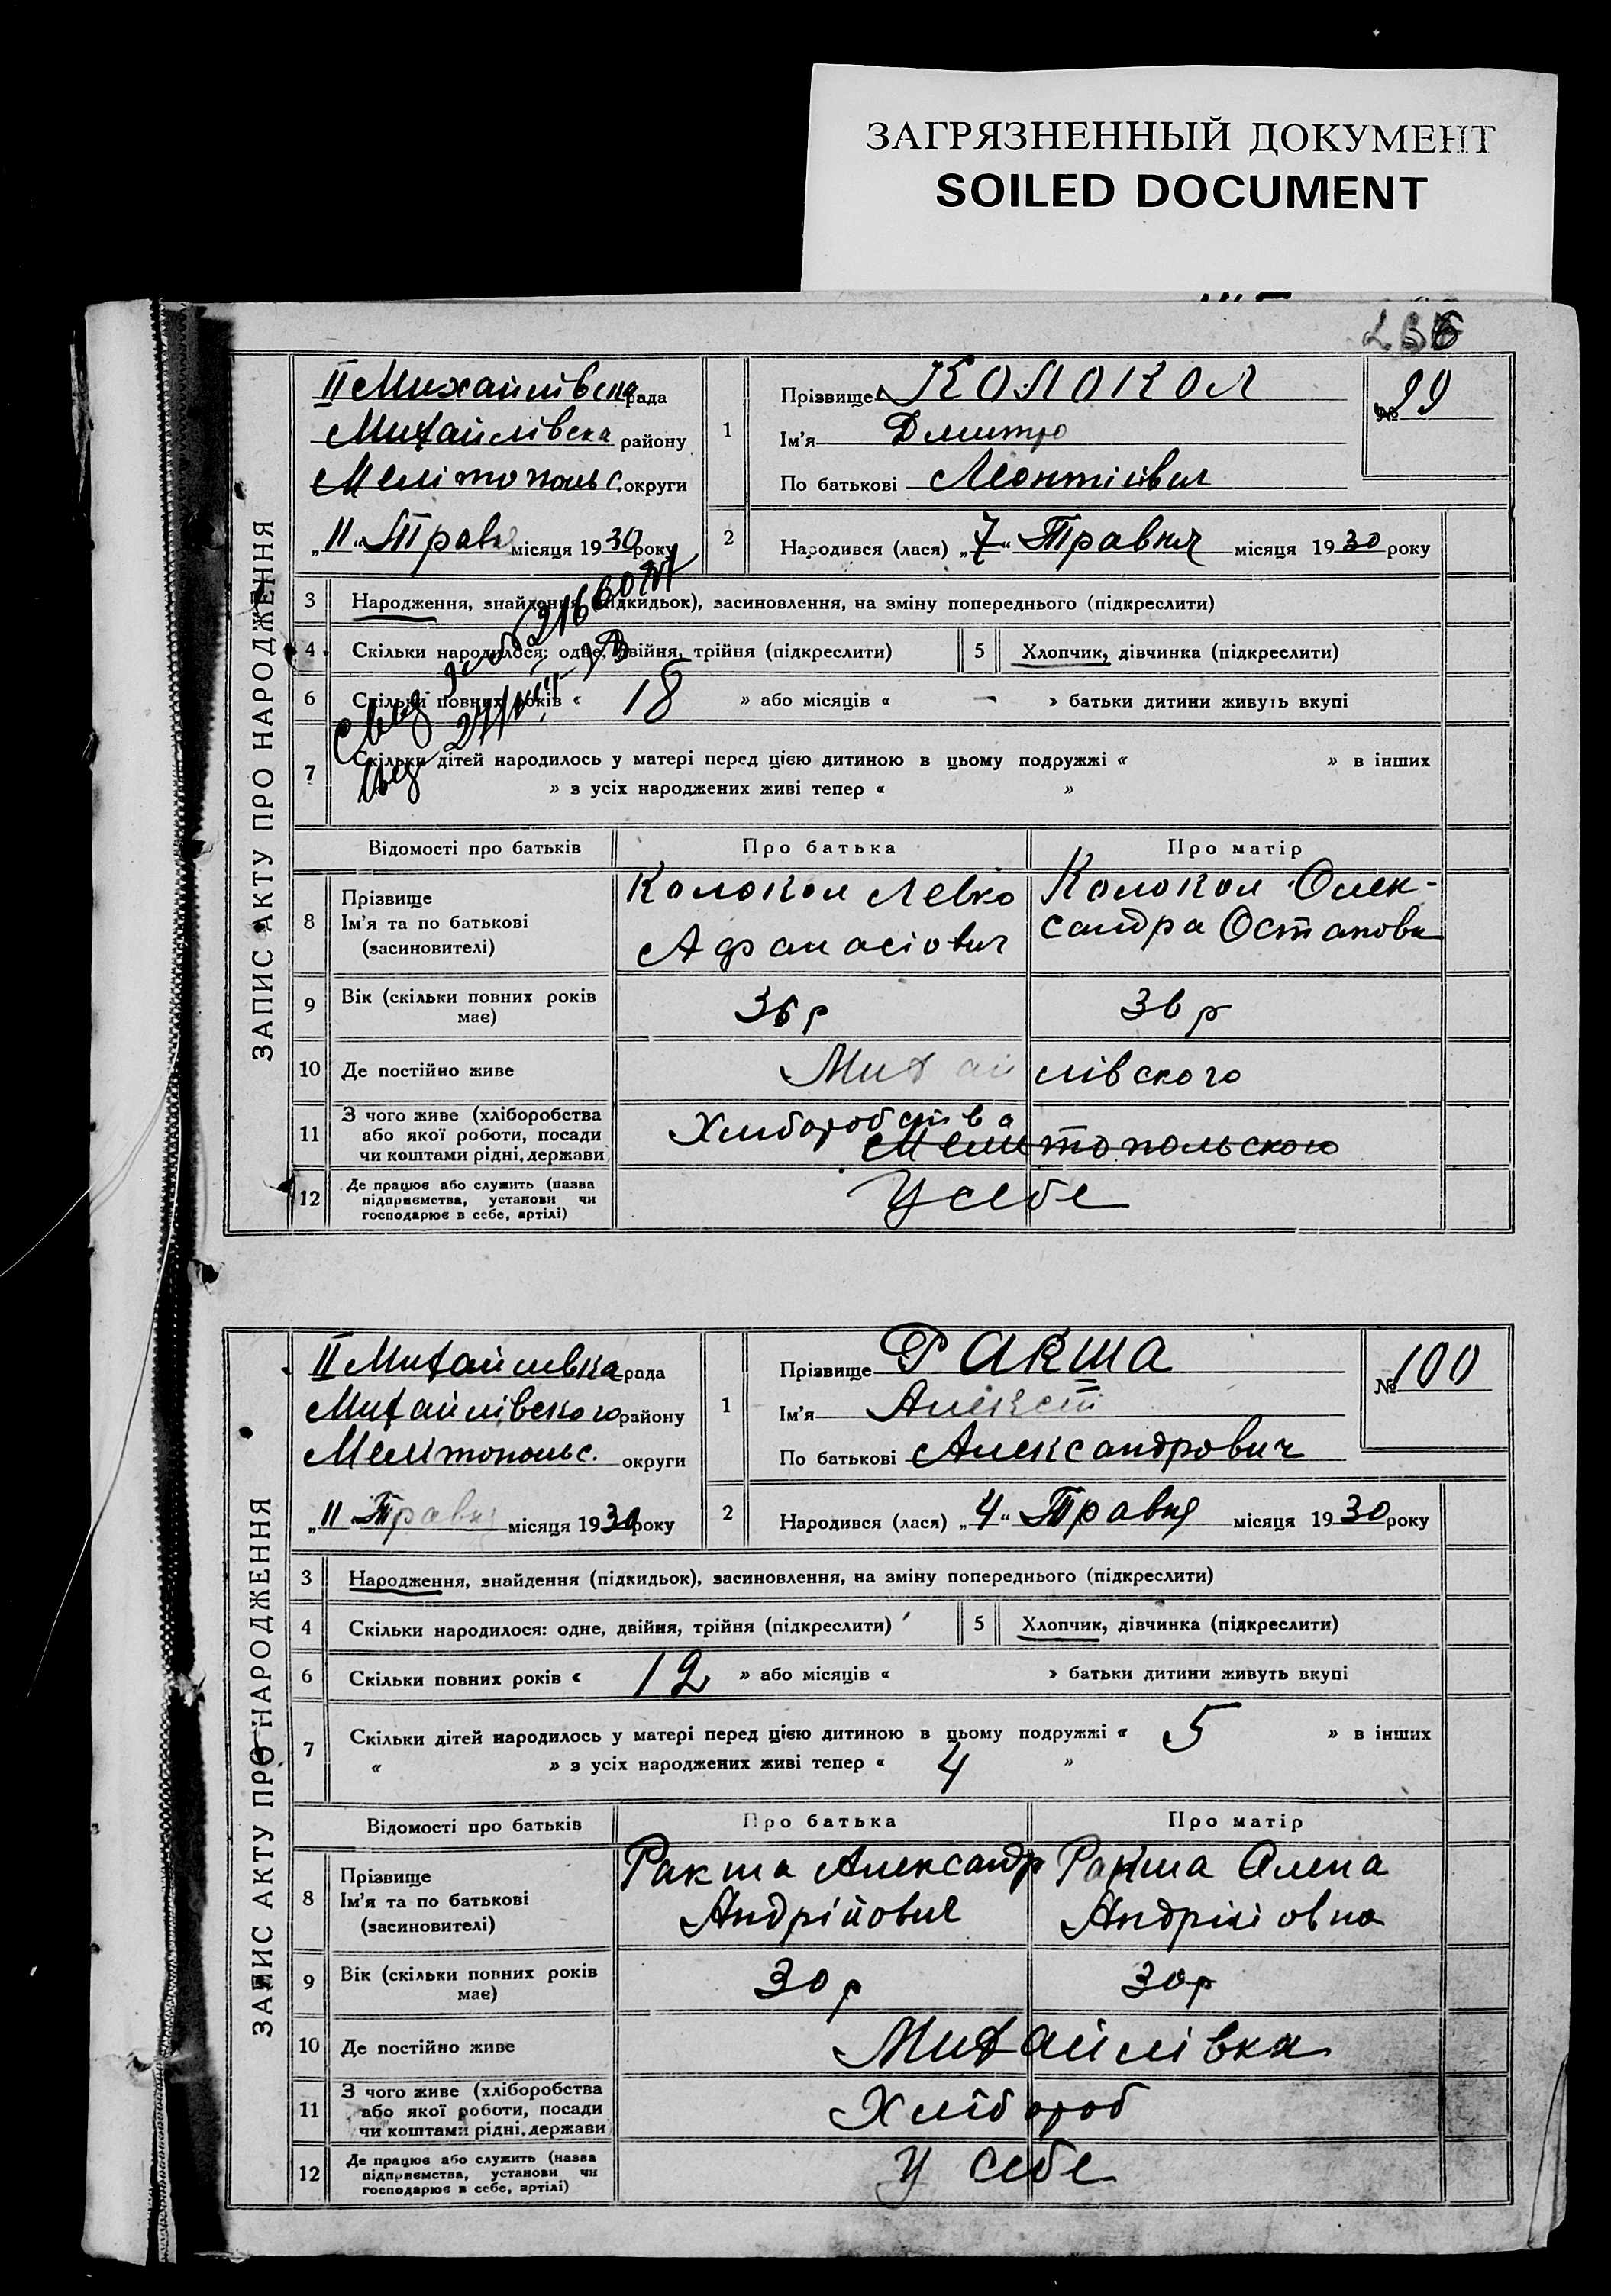 ЗАГРЯЗНЕННЫЙ ДОКУМЕНТ
SOILED DOCUMENT
ЗАПИС АКТУ ПРО НАРОДЖЕННЯ
II Михайлівска рада
Михайлівска району
Мелітопольс. округи
„11“ Травня місяця 1930 року
1
Прізвище Колокол
Ім'я Дмитро
По батькові Леонтіівич
№ 99
2
Народився (лася) „7“ Травня місяця 1930 року
3 Народження, знайдення (підкидьок), засиновлення, на зміну попереднього (підкреслити)
4 Скільки народилося: одне, двійня, трійня (підкреслити) 5 Хлопчик, дівчинка (підкреслити)
6 Скільки повних років « 18 » або місяців « — » батьки дитини живуть вкупі
7 Скільки дітей народилось у матері перед цією дитиною в цьому подружжі « » в інших
» з усіх народжених живі тепер « »
Відомості про батьків Про батька Про матір
8 Прізвище
Ім'я та по батькові
(засиновителі)
Колокол Левко
Афанасіович
Колокол Олек-
сандра Остаповн
9 Вік (скільки повних років
має)
36 р
36 р
10 Де постійно живе Михайлівского
11 З чого живе (хліборобства
або якої роботи, посади
чи коштами рідні, держави
Хліборобства
Мелитопольского
12 Де працює або служить (назва
підприємства, установи чи
господарює в себе, артілі)
У себе
ЗАПИС АКТУ ПРО НАРОДЖЕННЯ
II Михайлівка рада
Михайлівского району
Мелітопольс. округи
„11 Травня місяця 1930 року
1
Прізвище Ракша
Ім'я
По батькові Александрович
№ 100
2
Народився (лася) „4“ Травня місяця 1930 року
3 Народження, знайдення (підкидьок), засиновлення, на зміну попереднього (підкреслити)
4 Скільки народилося: одне, двійня, трійня (підкреслити) 5 Хлопчик, дівчинка (підкреслити)
6 Скільки повних років « 12 » або місяців « » батьки дитини живуть вкупі
7 Скільки дітей народилось у матері перед цією дитиною в цьому подружжі « 5 » в інших
« » з усіх народжених живі тепер « 4 »
Відомості про батьків Про батька Про матір
8 Прізвище
Ім'я та по батькові
(засиновителі)
Ракша Александр
Андрійович
Ракша Олена
Андріiовна
9 Вік (скільки повних років
має)
30 р
30 р
10 Де постійно живе Михайлівка
11 З чого живе (хліборобства
або якої роботи, посади
чи коштами рідні, держави
Хлібороб
12 Де працює або служить (назва
підприємства, установи чи
господарює в себе, артілі)
У себе